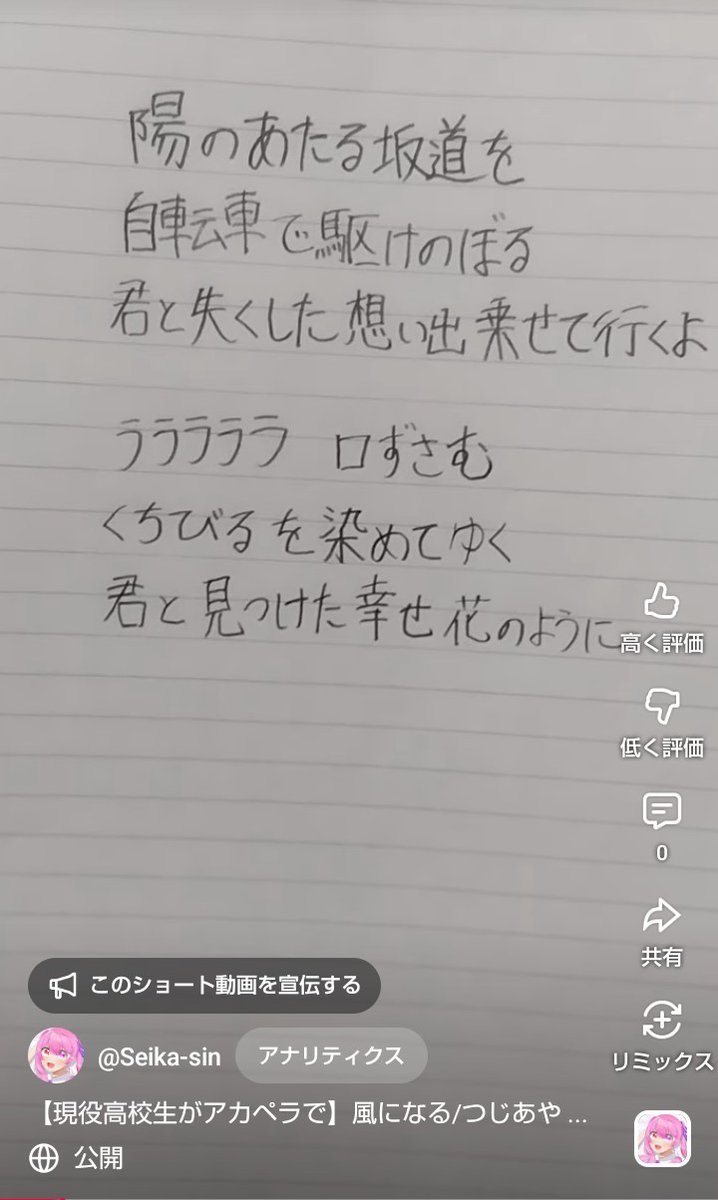 陽のあたる坂道を
自転車で駆けのぼる
君と失くした想い出乗せて行くよ
ラララララ 口ずさむ
くちびるを染めてゆく
君と見つけた幸せ花のように
高く評価
低く評価
0
共有
リミックス
このショート動画を宣伝する
@Seika-sin アナリティクス
【現役高校生がアカペラで】風になる/つじあや ...
公開